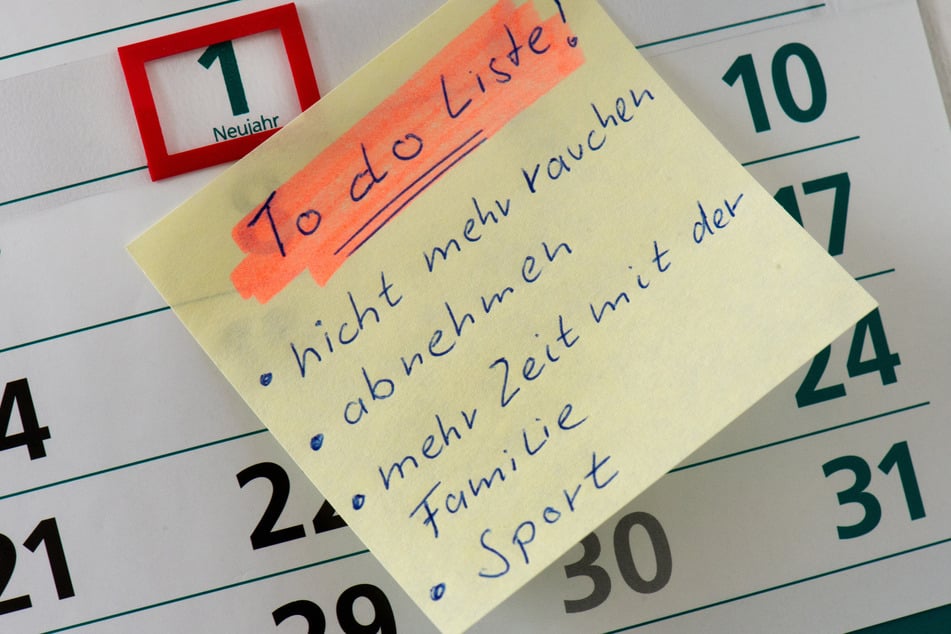 1
Neujahr
To do Liste!
• nicht mehr rauchen
• abnehmen
• mehr Zeit mit der
Familie
• Sport
10
17
24
4
22
31
21
29
30